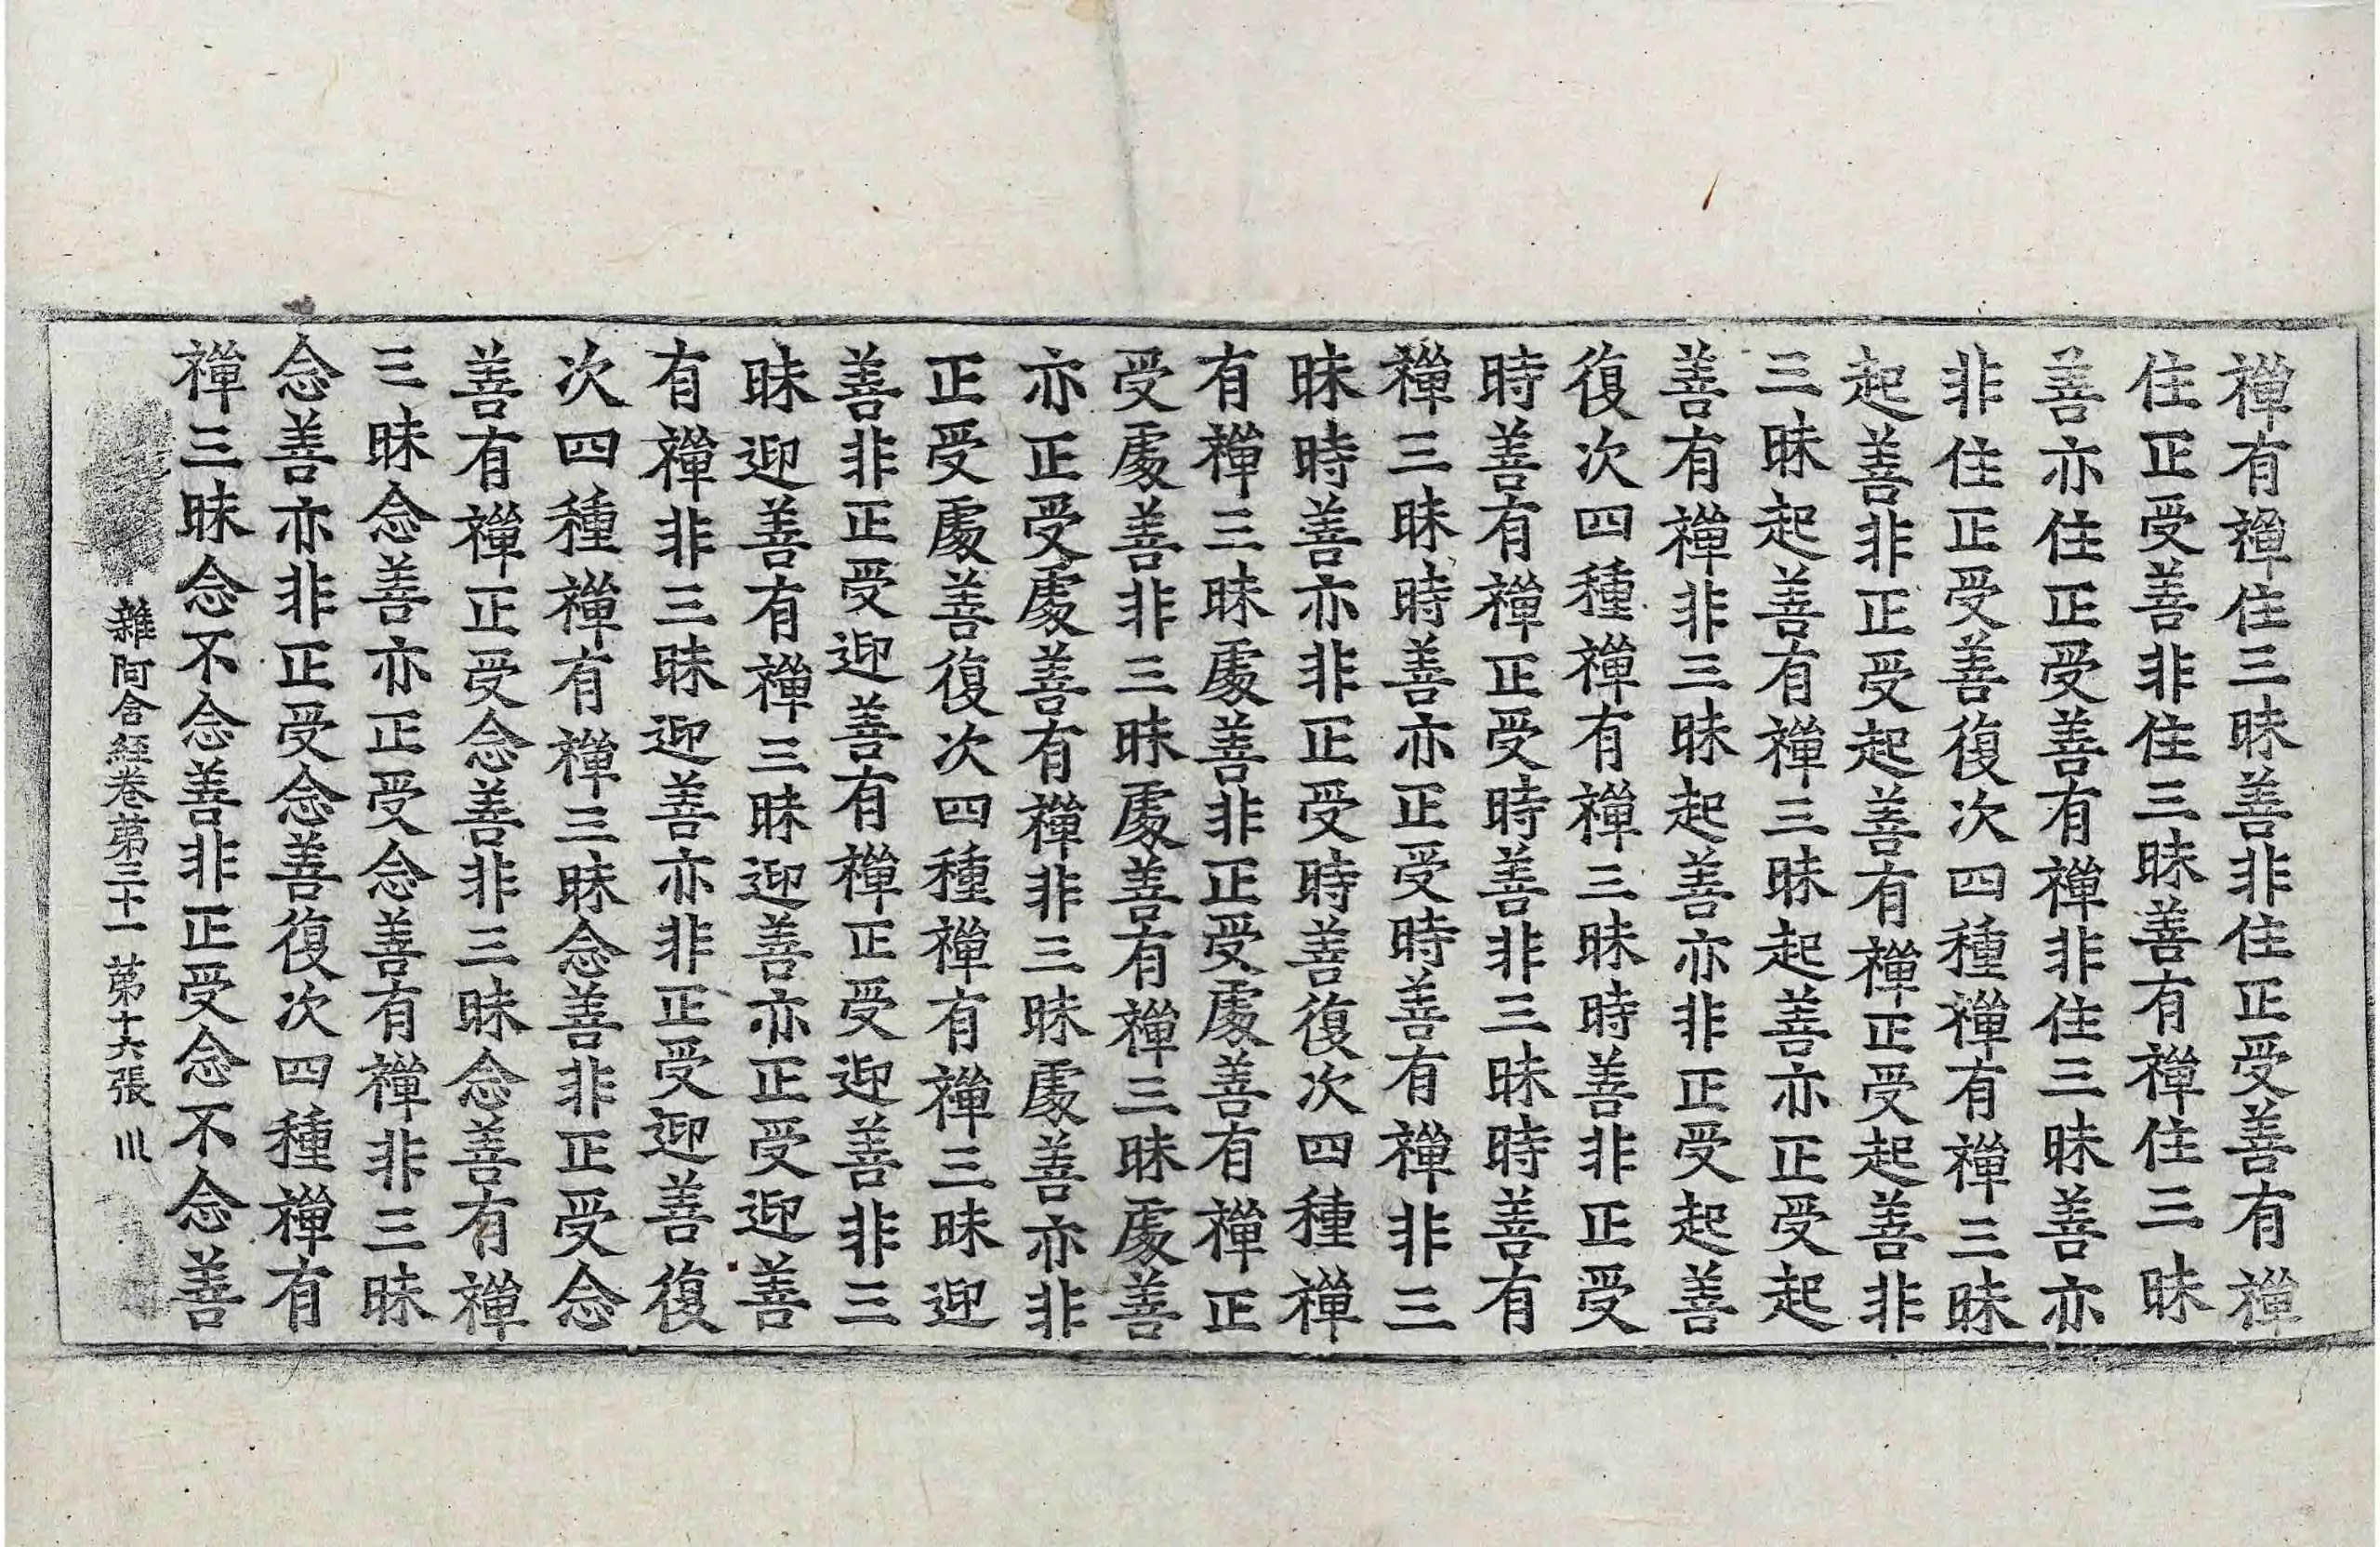 禪有禪住三昧善非住正受善有禪
住正受善非住三昧善有禪住三昧
善亦住正受善有禪非住三昧善亦
非住正受善復次四種禪有禪三昧
起善非正受起善有禪正受起善非
三昧起善有禪三昧起善亦正受起
善有禪非三昧起善亦非正受起善
復次四種禪有禪三昧時善非正受
時善有禪正受時善非三昧時善有
禪三昧時善亦正受時善有禪非三
昧時善亦非正受時善復次四種禪
有禪三昧處善非正受處善有禪正
受處善非三昧處善有禪三昧處善
亦正受處善有禪非三昧處善亦非
正受處善復次四種禪有禪三昧迎
善非正受迎善有禪正受迎善非三
昧迎善有禪三昧迎善亦正受迎善
有禪非三昧迎善亦非正受迎善復
次四種禪有禪三昧念善非正受念
善有禪正受念善非三昧念善有禪
三昧念善亦正受念善有禪非三昧
念善亦非正受念善復次四種禪有
禪三昧念不念善非正受念不念善
雜阿含經卷苐三十一 苐十六張 川